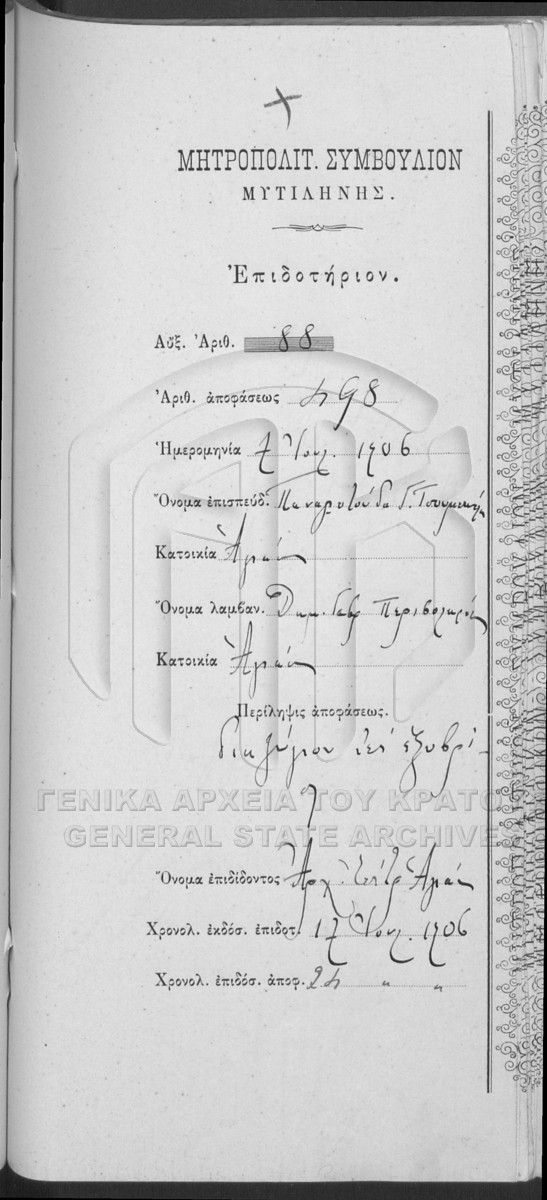 ΜΗΤΡΟΠΟΛΙΤ. ΣΥΜΒΟΥΛΙΟΝ
ΜΥΤΙΛΗΝΗΣ.
Ἐπιδοτήριον.
Αὔξ. Ἀριθ. 88
Ἀριθ. ἀποφάσεως 498
Ἡμερομηνία 7 Ἰουλ. 1906
Ὄνομα ἐπισπεύδ. Παναγιωτούδα Γ.
Κατοικία Ἁγιάσ
Ὄνομα λαμβαν. Δημ. Γαβρ Περιβολαρ
Κατοικία Ἁγιάσ
Περίληψις ἀποφάσεως.
διαζύγιον
ΓΕΝΙΚΑ ΑΡΧΕΙΑ ΤΟΥ ΚΡΑΤΟΥ
GENERAL STATE ARCHIVES
Ὄνομα ἐπιδίδοντος Ἀρχ. Ἁγιάσ
Χρονολ. ἐκδόσ. ἐπιδοτ. 17 Ἰουλ. 1906
Χρονολ. ἐπιδόσ. ἀποφ. 24 " "